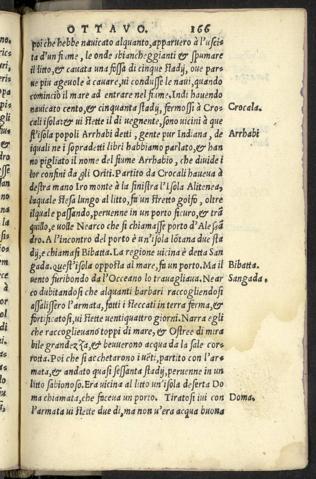 OTTAVO. 166
poi che hebbe nauicato alquanto, apparuero à l'usci
ta d'un fiume, le onde sbiancheggianti & spumare
il litto, & cauata una fossa di cinque stadÿ, oue par=
ue piu ageuole à cauare, ui condusse le naui, quando
cominciò il mare ad entrare nel fiume. Indi hauendo
nauicato cento, & cinquanta stadÿ, fermossi à Cros Crocala.
cali isola: & ui stette il dì uegnente, sono uicini à que
st'isola popoli Arrhabi detti, gente pur Indiana, de Arrhabi
iquali ne i sopradetti libri habbiamo parlato, & han
no pigliato il nome del fiume Arrhabio, che diuide i
lor confini da gli Oriti. Partito da Crocali haueua à
destra mano Iro monte à la sinistra l'isola Alitenea,
laquale stesa lungo al litto, fa un stretto golfo, oltre
ilquale passando, peruenne in un porto sicuro, & trã
quillo, e uolle Nearco che si chiamasse porto d'Alesã
dro. A l'incontro del porto è un'isola lõtana due sta
dÿ, e chiamasi Bibatta. La regione uicina è detta San
gada. quest'isola opposta al mare, fa un porto. Ma il Bibatta.
vento furibondo da l'Oceano lo trauagliaua. Near Sangada.
co dubitandosi che alquanti barbari raccogliendosi
assalissero l'armata, fatti i steccati in terra ferma, &
fortificatosi, ui stette uentiquattro giorni. Narra egli
che raccoglieuano toppi di mare, & Ostree di mira
bile grandezza, & beuuerono acqua da la sale cor=
rotta. Poi che si acchetarono i uẽti, partito con l'ar=
mata, & andato quasi sessanta stadÿ, peruenne in un
litto sabionoso. Era uicina al litto un'isola deserta Do
ma chiamata, che faceua un porto. Tiratosi iui con Doma.
l'armata ui stette due dì, ma non u'era acqua buona